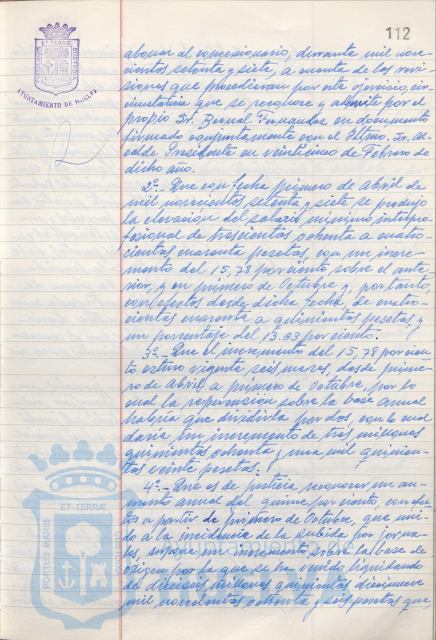 112
AYUNTAMIENTO DE HUELVA
abonar al concesionario, durante mil nove-
cientos setenta y siete, a cuenta de las revi-
siones que procedieran por este ejercicio, cir-
cunstancia que se reconoce y admite por el
propio Sr. Bernal Fernandez en documento
firmado conjuntamente con el Iltmo. Sr. Al-
calde Presidente en veinticinco de Febrero de
dicho año.
2º.- Que con fecha primero de Abril de
mil novecientos setenta y siete se produjo
la elevación del salario mínimo interpro-
fesional de trescientas ochenta a cuatro-
cientas cuarenta pesetas, con un incre-
mento del 15,78 por ciento sobre el ante-
rior, y en primero de Octubre y, por tanto,
con efectos desde dicha fecha, de cuatro-
cientas cuarenta a quinientas pesetas y
un porcentaje del 13.63 por ciento.
3º.- Que el incremento del 15,78 por cien-
to estuvo vigente seis meses, desde prime-
ro de abril a primero de Octubre, por lo
cual la repercusión sobre la base anual
habría que dividirla por dos, con lo cual
daría un incremento de tres millones
quinientas ochenta y una mil quinien-
tas veinte pesetas.
4º.- Que es de justicia reconocer un au-
mento anual del quince por ciento, con efec-
tos a partir de primero de Octubre, que uni-
do a la incidencia de la subida por jorna-
les, supone un incremento sobre la base de
origen por la que se ha venido liquidando
de dieciseis millones quinientas diecinueve
mil novecientas ochenta y seis pesetas que,
ET TERRÆ
PORTUS MARIS
CUSTODIA